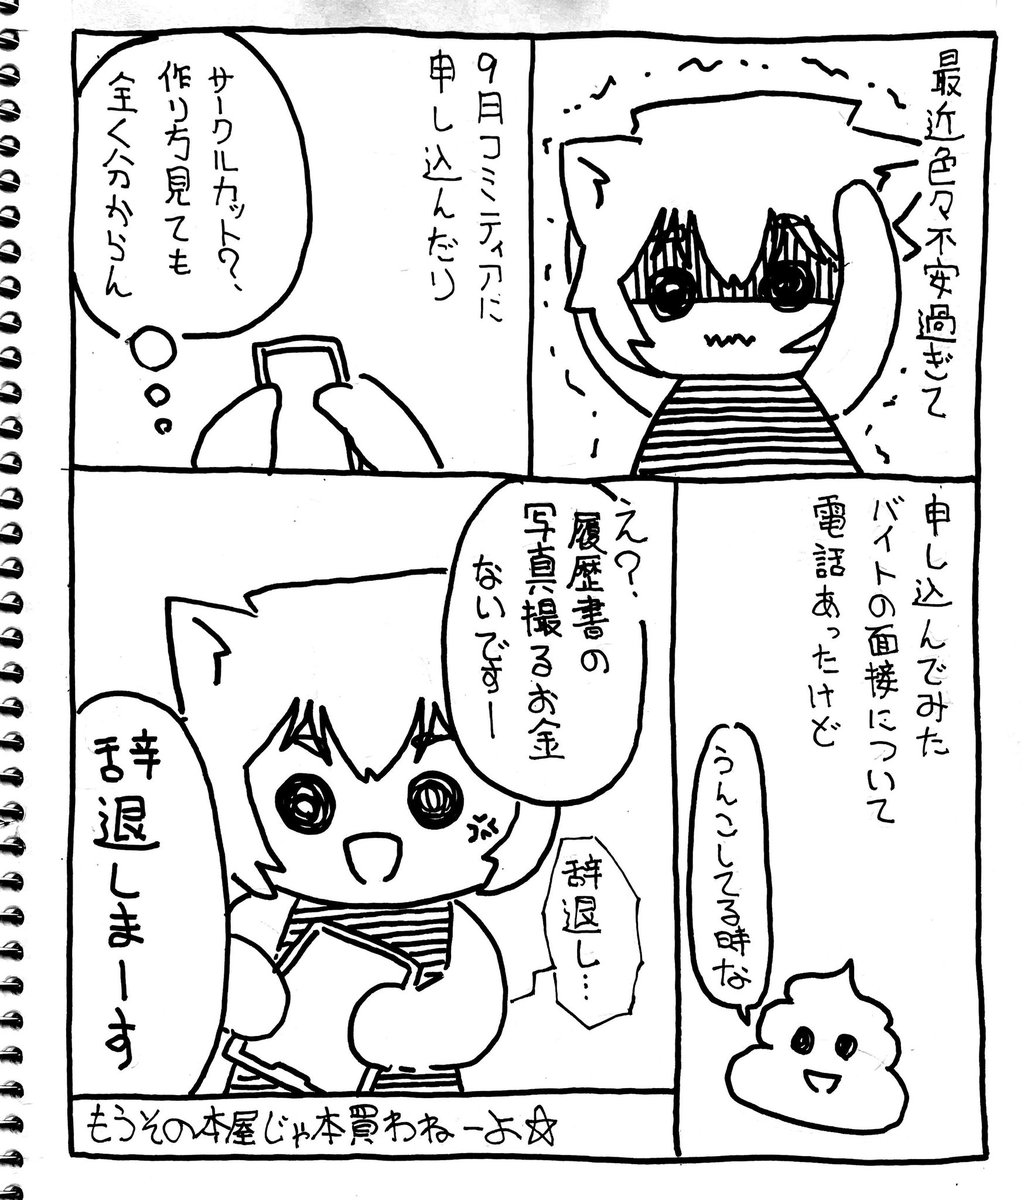 最近色々不安過ぎて
9月コミティアに
申し込んだり
サークルカット?、
作り方見ても
全く分からん
申し込んでみた
バイトの面接について
電話あったけど
うんこしてる時な
え?
履歴書の
写真撮るお金
ないですー
辞退し…
辞退しまーす
もうその本屋じゃ本買わねーよ☆